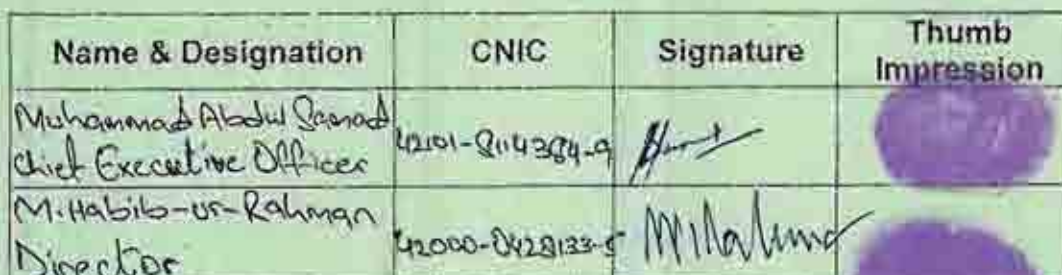 Name & Designation CNIC Signature Thumb Impression
Muhammad Abdul Samad
Chief Executive Officer 42101-8114384-9
M. Habib-ur-Rahman
Director 42000-0428133-5